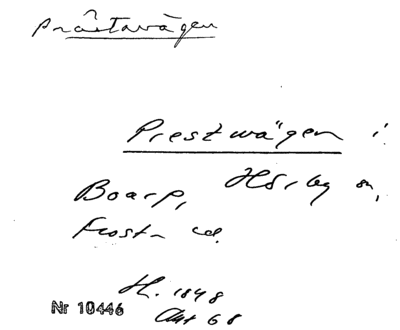 Prästavägen
Prestwägen i
Boarp, Hörby sn,
Frosta hd.
H. 1848
Akt 68
Nr 10446